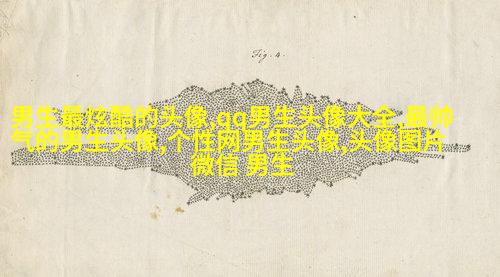 Fig. 4.
男生最炫酷的头像,qq男生头像大全,最帅
气的男生头像,个性网男生头像,头像图片
微信 男生